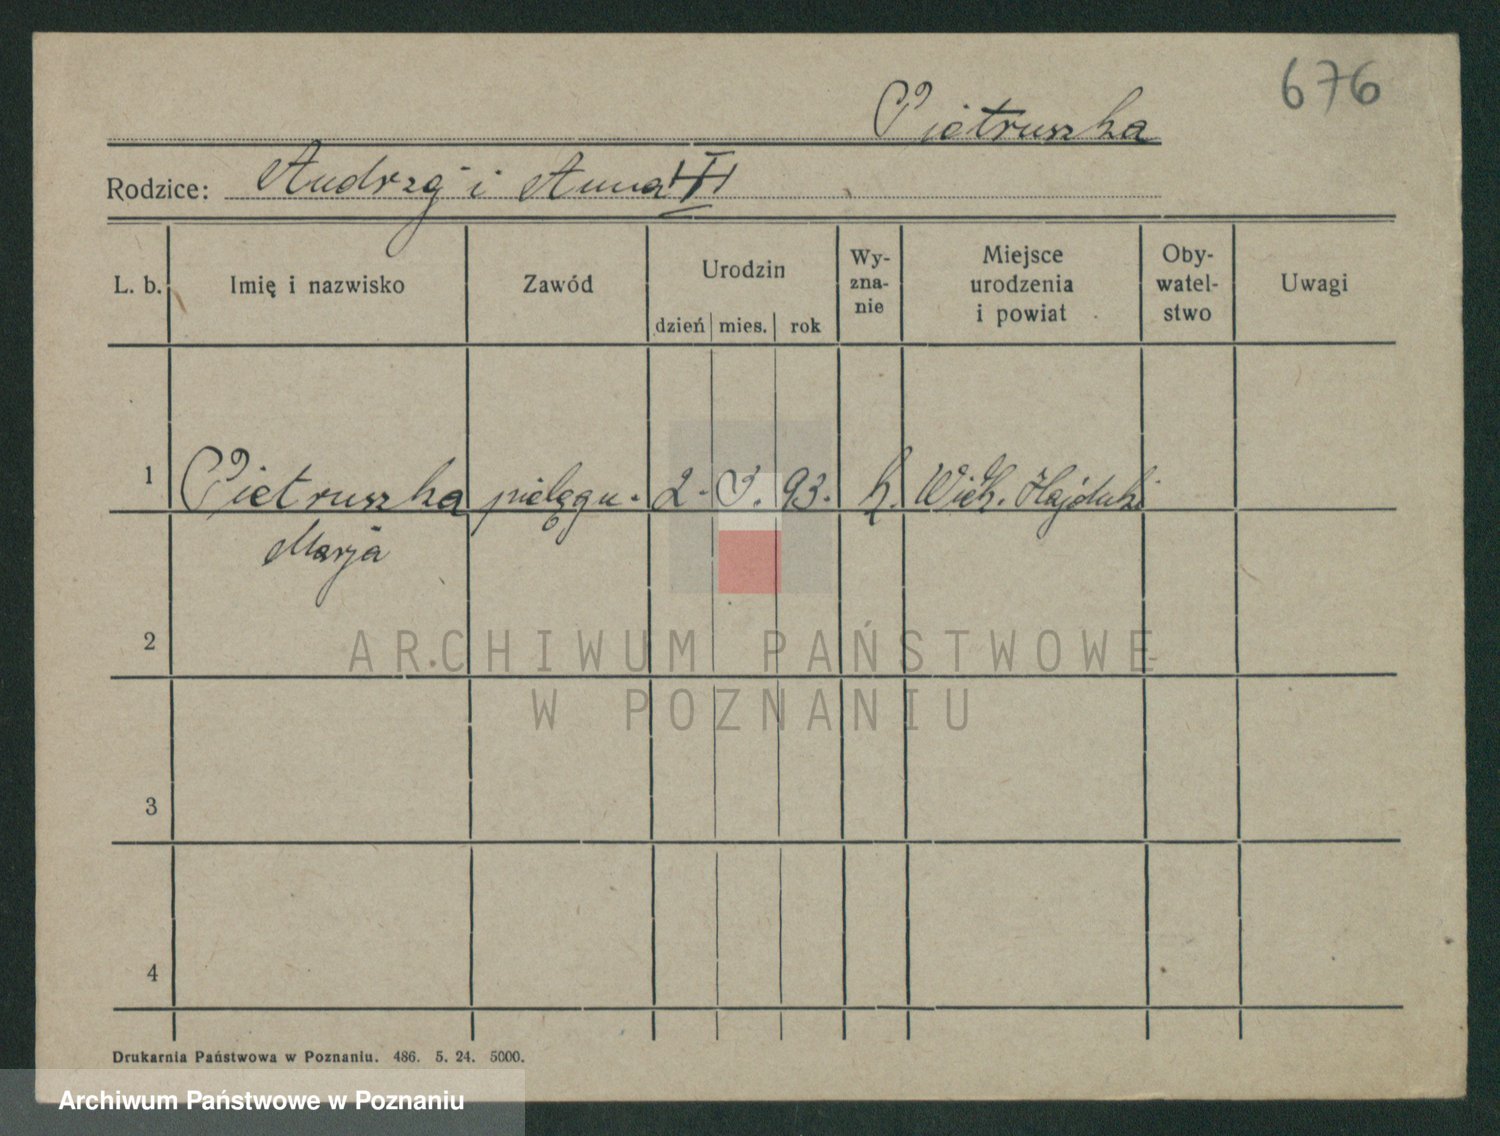 676
Pietruszka
Rodzice: Andrzej i Anna
L. b. Imię i nazwisko Zawód Urodzin dzień mies. rok Wy-zna-nie Miejsce urodzenia i powiat Oby-watel-stwo Uwagi
1 Pietruszka pielęgn. 2. 93. k. Wielk. Hajduki
Marja
2
ARCHIWUM PAŃSTWOWE
W POZNANIU
3
4
Drukarnia Państwowa w Poznaniu. 486. 5. 24. 5000.
Archiwum Państwowe w Poznaniu